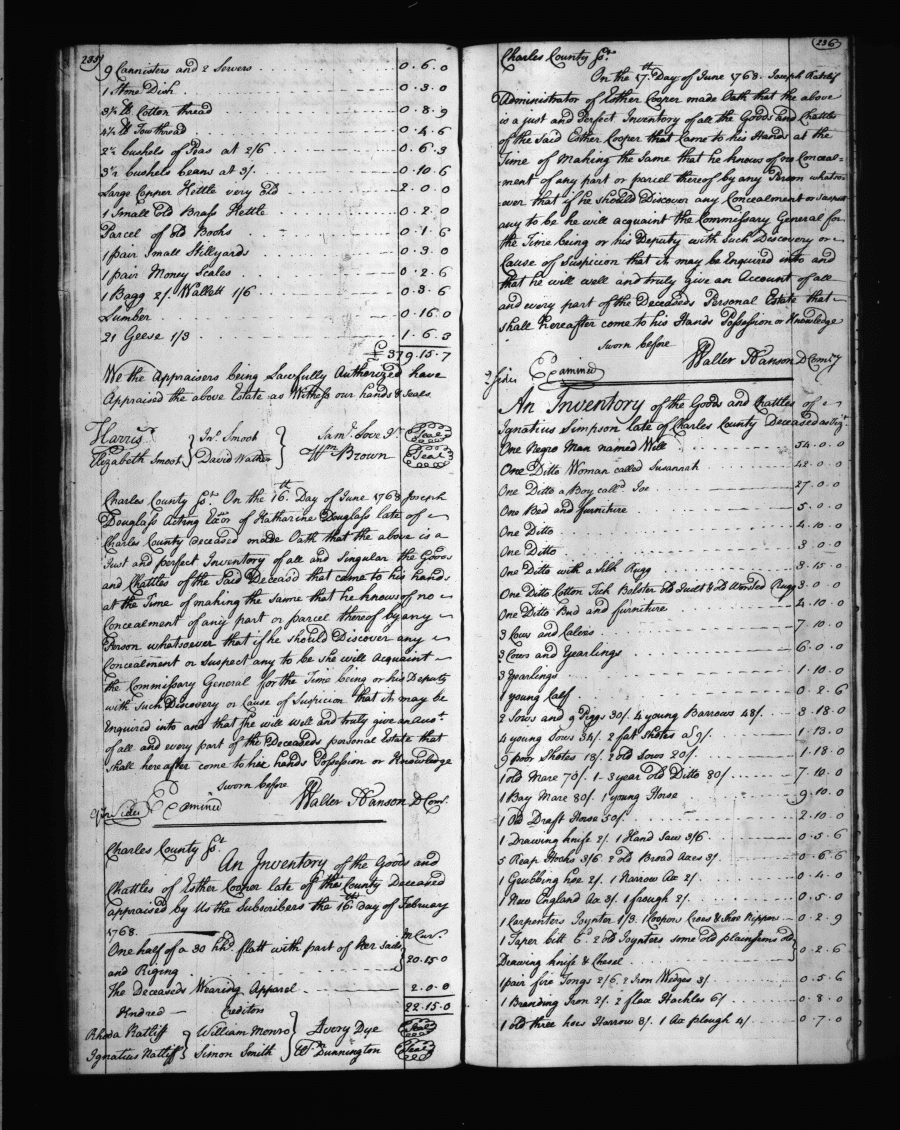 235
9 Cannisters and 2 Servers 0.6.0
1 Stone Dish 0.3.0
3½ lb Cotton thread 0.8.9
4½ lb Tow thread 0.4.6
2½ bushels of Peas at 2/6 0.6.3
3½ bushels beans at 3/. 0.10.6
Large Copper Kettle very old 2.0.0
1 Small Old Brass Kettle 0.2.0
Parcel of old Books 0.1.6
1 pair Small Stillyards 0.3.0
1 pair Money Scales 0.2.6
1 Bagg 2/. Wallett 1/6 0.3.6
Lumber 0.16.0
21 Geese 1/3 1.6.3
£379.15.7
We the Appraisers being Lawfully Authorized have
Appraised the above Estate as Witness our hands & Seals.
Harris Jno. Smoot Saml. Love Jr. Seal
Elizabeth Smoot David Wm. Brown Seal
Charles County Sct. On the 16th Day of June 1768 Joseph
Douglass Acting Exor of Katharine Douglass late of
Charles County deceased made Oath that the above is a
Just and perfect Inventory of all and Singular the Goods
and Chattles of the Said Deceased that came to his hands
at the Time of making the Same that he knows of no
Concealment of any part or parcel thereof by any
Person whatsoever that if he should Discover any
Concealment or Suspect any to be she will acquaint
the Commissary General for the Time being or his Deputy
with such Discovery or Cause of Suspicion that it may be
Enquired into and that he will well and truly give an Acct
of all and every part of the Deceaseds personal Estate that
shall hereafter come to his hands Possession or Knowledge
Sworn before
Sides Examined Walter Hanson D Com.
Charles County Sct.
An Inventory of the Goods and
Chattles of Esther Cooper late of the County Deceased
appraised by Us the Subscribers the 16th day of February
1768. Cur.
One half of a 30 hhd. flatt with part of her Sails
and Riging 20.15.0
The Deceaseds Wearing Apparel 2.0.0
Kindred Creditors 22.15.0
Rhoda Ratliff William Monro Avery Dye Seal
Ignatius Ratliff Simon Smith Wm Dunnington Seal
236
Charles County Sct.
On the 17th Day of June 1768. Joseph Ratclif
Administrator of Esther Cooper made Oath that the above
is a just and Perfect Inventory of all the Goods and Chattles
of the said Esther Cooper that Came to his Hands at the
Time of Making the Same that he knows of no Conceal=
=ment of any part or parcel thereof by any Person whatso=
ever that if he should Discover any Concealment or Suspect
any to be he will acquaint the Commissary General for
the Time being or his Deputy with Such Discovery or
Cause of Suspicion that it may be Enquired into and
that he will well and truly give an Account of all
and every part of the Deceaseds Personal Estate that
shall hereafter come to his Hands Possession or Knowledge
Sworn before
Walter Hanson D Comry
2 Sides Examined
An Inventory of the Goods and Chattles of
Ignatius Simpson late of Charles County Deceased
One Negro Man named Will 54.0.0
One Ditto Woman called Susannah 42.0.0
One Ditto a Boy calld. Joe 27.0.0
One Bed and furniture 5.0.0
One Ditto 4.10.0
One Ditto 3.0.0
One Ditto with a Silk Rugg 3.15.0
One Ditto Cotton Tick Bolster Old Quilt & Old Worsted Rugg 3.0.0
One Ditto Bed and furniture 4.10.0
3 Cows and Calves 7.10.0
3 Cows and Yearlings 6.0.0
3 Yearlings 1.10.0
1 young Calf 0.2.6
2 Sows and 9 Piggs 30/. 4 young Barrows 48/. 3.18.0
4 young Sows 24/. 2 fat Shotes a 9/. 1.13.0
9 poor Shotes 18/. 2 old Sows 20/. 1.18.0
1 old Mare 70/. 1-3 year old Ditto 80/. 7.10.0
1 Bay Mare 80/. 1 young Horse 9.10.0
1 Old Draft Horse 50/. 2.10.0
1 Drawing knife 2/. 1 Hand Saw 3/6 0.5.6
5 Reap Hooks 3/6 2 old Broad Axes 3/. 0.6.6
1 Grubbing hoe 2/. 1 Narrow Ax 2/. 0.4.0
1 New England Ax 3/. 1 frough 2/. 0.5.0
1 Carpenters Joynter 1/3. 1 Coopers Crees & Shoe Nippers 0.2.9
1 Taper bitt 6d. 2 old Joynters some old plain Irons old
Drawing knife & Chesel 0.2.6
1 pair fire Tongs 2/6. 2 Iron Wedges 3/. 0.5.6
1 Branding Iron 2/. 2 flax Hackles 6/. 0.8.0
1 old three hoes Harrow 3/. 1 Ax plough 4/. 0.7.0